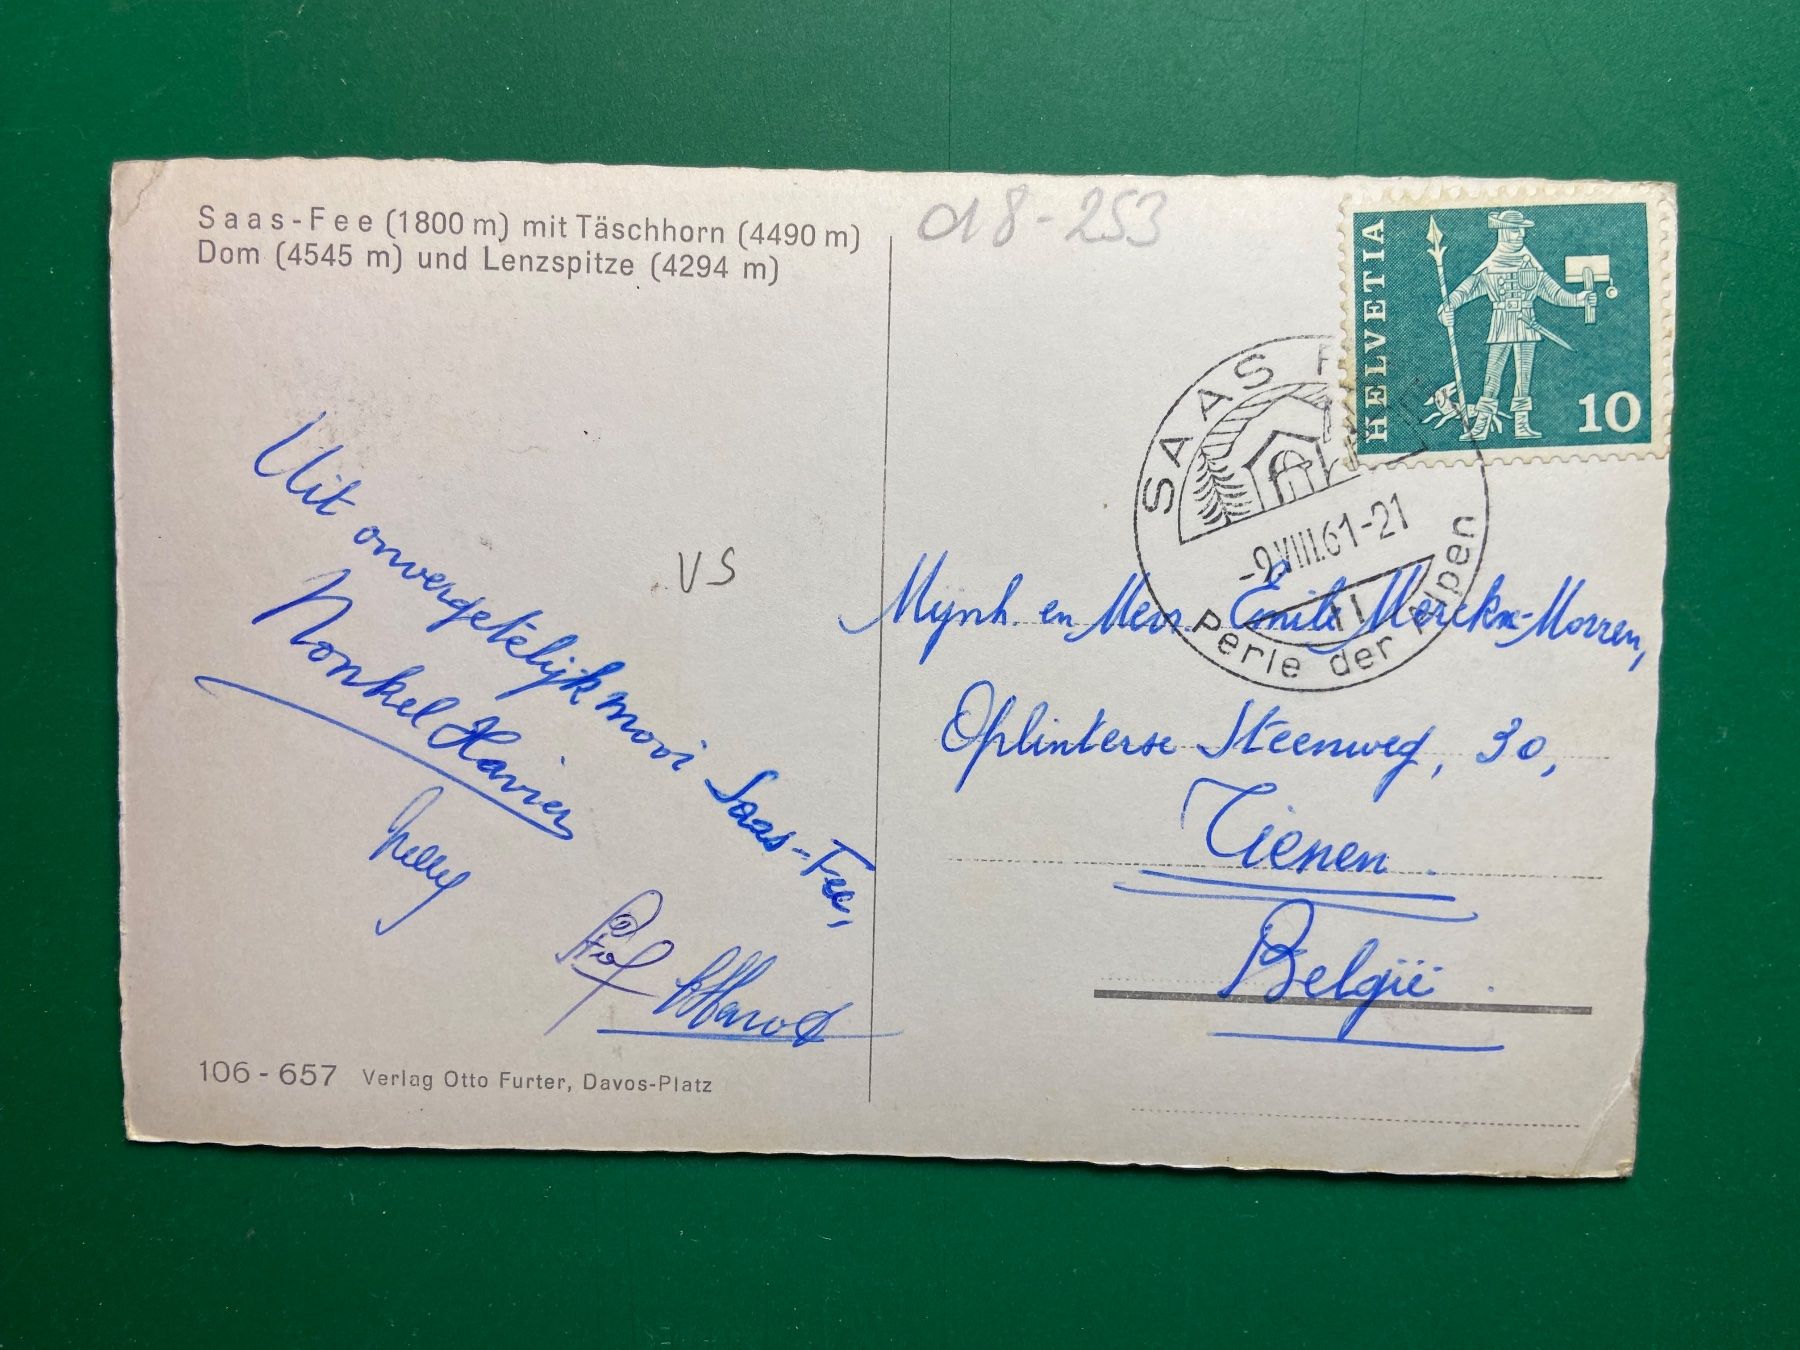 Saas-Fee (1800 m) mit Täschhorn (4490 m)
Dom (4545 m) und Lenzspitze (4294 m)
018-253
HELVETIA
10
SAAS F
-9.VIII.61-21
Perle der Alpen
VS
Uit onvergetelijk mooi Saas-Fee,
Nonkel Xavier
Nelly
Mijnh. en Mevr. Emile Merckx-Morren,
Oplinterse Steenweg, 30,
Tienen.
België.
106-657 Verlag Otto Furter, Davos-Platz